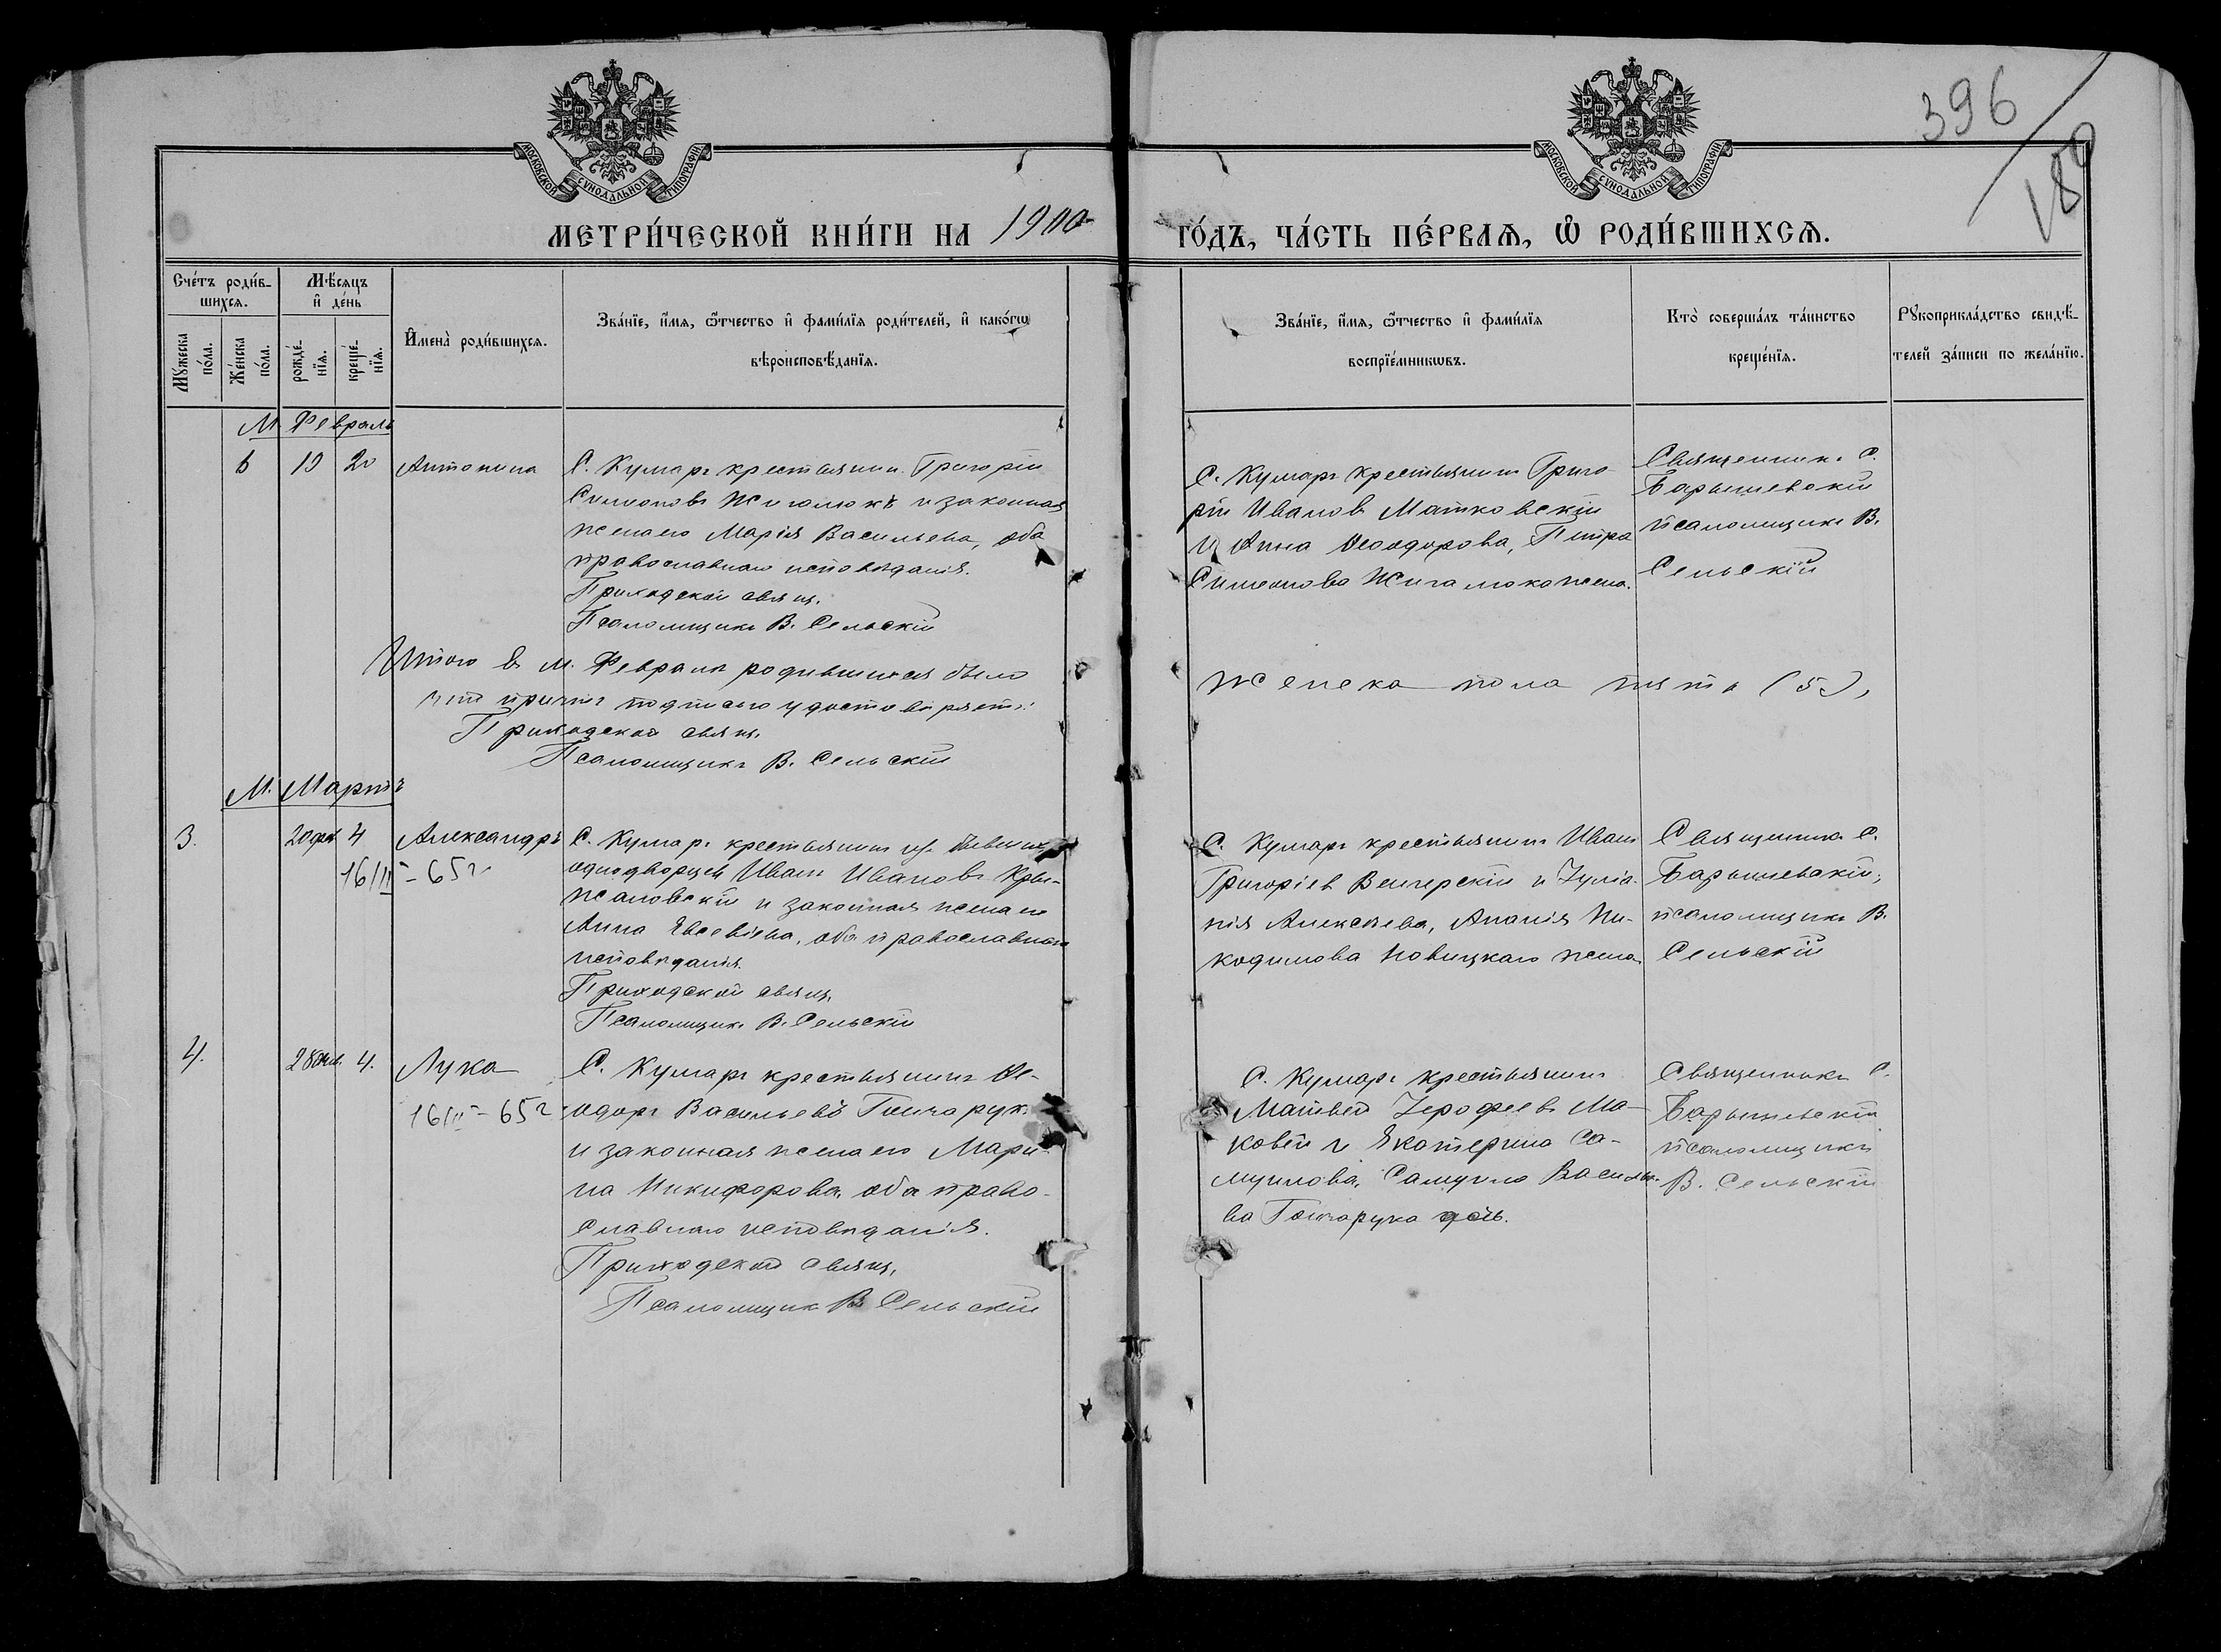 396
180
МОСКОВСКОЙ СѴНОДАЛЬНОЙ ТИПОГРАФІИ
МОСКОВСКОЙ СѴНОДАЛЬНОЙ ТИПОГРАФІИ
МЕТРИ́ЧЕСКОЙ КНИ́ГИ НА 1900
ГО́ДЪ, ЧА́СТЬ ПЕ́РВАѦ, Ѡ РОДИ́ВШИХСѦ.
Сче́тъ роди́в-
шихсѧ.
Мѣ́сяцъ
и҆ де́нь
Мꙋ́жеска
по́ла.
Же́нска
по́ла.
рожде́-
нїѧ.
креще́-
нїѧ.
И҆мена̀ роди́вшихсѧ.
Зва́нїе, и҆́мѧ, ѻ҆́тчество и҆ фами́лїѧ роди́телей, и҆ како́гѡ
вѣроисповѣ́данїѧ.
Зва́нїе, и҆́мѧ, ѻ҆́тчество и҆ фами́лїѧ
воспрїе́мникѡвъ.
Кто̀ соверша́лъ та́инство
креще́нїѧ.
Рꙋкоприкла́дство свидѣ́-
телей за́писи по жела́нїю.
М. Февраль
6 19 20 Антонина
С. Кумаръ крестьянинъ Григорій
Симоновъ Жигалюкъ и законная
жена его Марія Васильева, оба
православнаго исповѣданія.
Приходской свящ.
Псаломщикъ В. Сельскій
С. Кумаръ крестьянинъ Григо
рій Ивановъ Матковскій
и Анна Ѳеодорова, Петра
Симеонова Жигалюка жена.
Священникъ С.
Барышевскій
псаломщикъ В.
Сельскій
Итого въ м. Февралѣ родившихся было
женска пола пять (5),
что причтъ подписью удостовѣряетъ:
Приходской свящ.
Псаломщикъ В. Сельскій
М. Мартъ
3. 20 фев 4 Александръ
16/II - 65 г
С. Кумаръ крестьянинъ изъ бывшихъ
однодворцевъ Иванъ Ивановъ Кры-
жановскій и законная жена его
Анна Евсевіева, оба православнаго
исповѣданія.
Приходской свящ.
Псаломщикъ В. Сельскій
С. Кумаръ крестьянинъ Иванъ
Григоріевъ Венгерскій и Іуліа-
нія Алексѣева, Ананія Ни-
кодимова Новицкаго жена
Священникъ С.
Барышевскій,
псаломщикъ В.
Сельскій
4. 28 4. Лука
16/II - 65 г
С. Кумаръ крестьянинъ Ѳе-
одоръ Васильевъ Гончарукъ
и законная жена его Мари-
на Никифорова, оба право-
славнаго исповѣданія.
Приходской свящ.
Псаломщикъ В. Сельскій
С. Кумаръ крестьянинъ
Матвей Іерофеевъ Ма-
ковей и Екатерина Са-
муилова, Самуила Василье-
ва Гончарука дочь.
Священникъ С.
Барышевскій
псаломщикъ
В. Сельскій